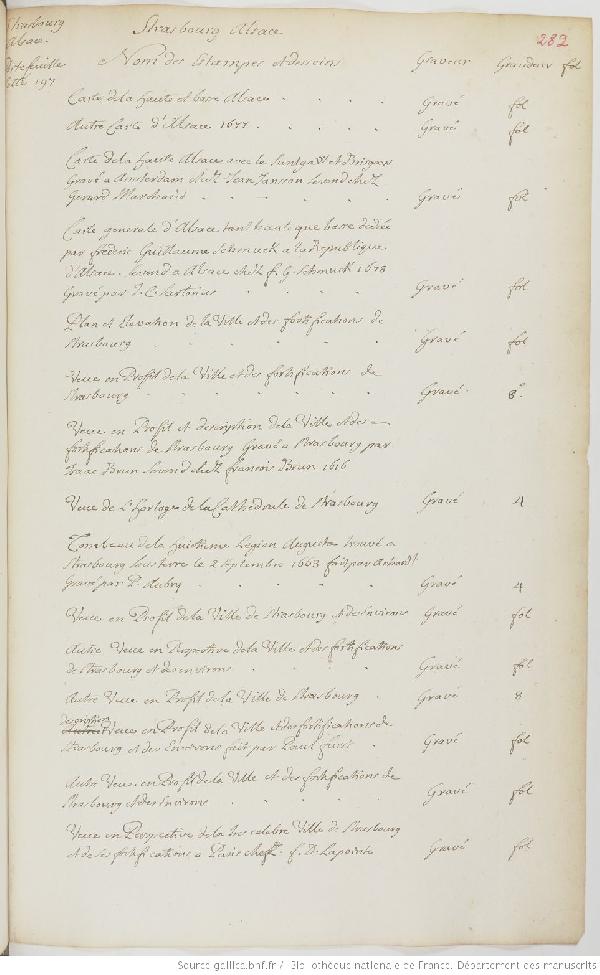 Strasbourg
Alsace.
Strasbourg Alsace
282
Portefeuille
197
Nom des Estampes et desseins Graveur Grandeur fol
Carte de la haute et basse Alsace . . . . Gravé fol
Autre Carte d'Alsace 1677 . . . . Gravé fol
Carte de la haute Alsace avec le Suntgaw et Brisgaw
Gravé a Amsterdam chez Jean Janson se vend chez
Gerard . . . . Gravé fol
Carte generale d'Alsace tant haute que basse dediée
par frederic Guillaume Schmuck a la Republique
d'Alsace. se vend a Alsace chez f. G. Schmuck 1678
Gravé par J. C. Sartorius . . . . Gravé fol
Plan et Elevation de la Ville et des fortifications de
Strasbourg . . . . Gravé fol
Veue en Profil de la Ville et des fortifications de
Strasbourg . . . . Gravé. 8º.
Veue en Profil et description de la Ville et des
fortifications de Strasbourg Gravé a Strasbourg par
Isaac Brun se vend chez francois Brun 1616
Veue de L'horloge de la Cathedrale de Strasbourg Gravé 4
Tombeau de la huitieme Legion Auguste trouvé a
Strasbourg sous terre le 2 Septembre 1663 fait par
Gravé par P. Aubry . . . . Gravé 4
Veue en Profil de la Ville de Strasbourg et des Environs Gravé fol
Autre Veue en Perspective de la Ville et des fortifications
de Strasbourg et des environs . . . Gravé fol
Autre Veue en Profil de la Ville de Strasbourg . Gravé 8
description
Veue en Profil de la Ville et des fortifications de
Strasbourg et des Environs fait par Paul furst . Gravé fol
Autre Veue en Profil de la Ville et des fortifications de
Strasbourg et des Environs . . . . Gravé fol
Veue en Perspective de la tres celebre Ville de Strasbourg
et de ses fortifications a Paris chez f. D. Lapointe Gravé fol
Source gallica.bnf.fr / Bibliothèque nationale de France. Département des manuscrits